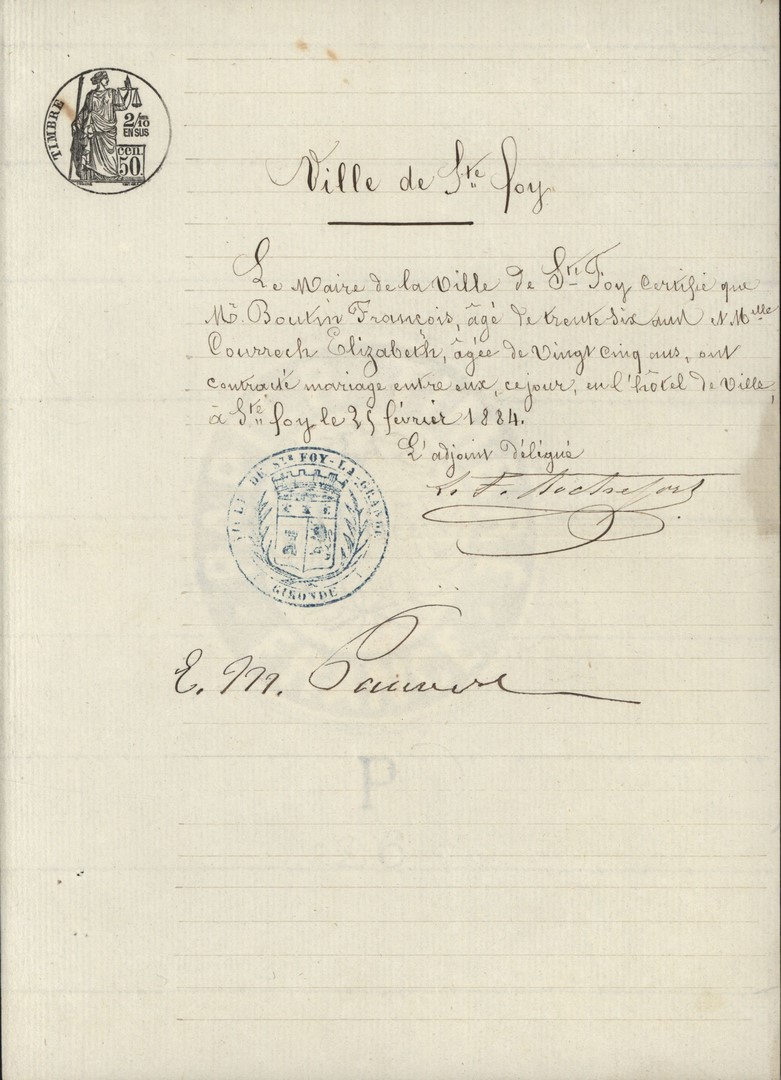 TIMBRE
2/10 EN SUS
cen. 50.
Ville de Ste foy
Le Maire de la Ville de Ste Foy certifie que
Mr. Boutin François, âgé de trente six ans et Melle
Courrech Elizabeth, âgée de vingt cinq ans, ont
contracté mariage entre eux, ce jour, en l'hôtel de Ville,
à Ste foy le 25 février 1884.
L'adjoint délégué
L. F. Rochefort
VILLE DE STE FOY-LA-GRANDE
GIRONDE
E. M.
P